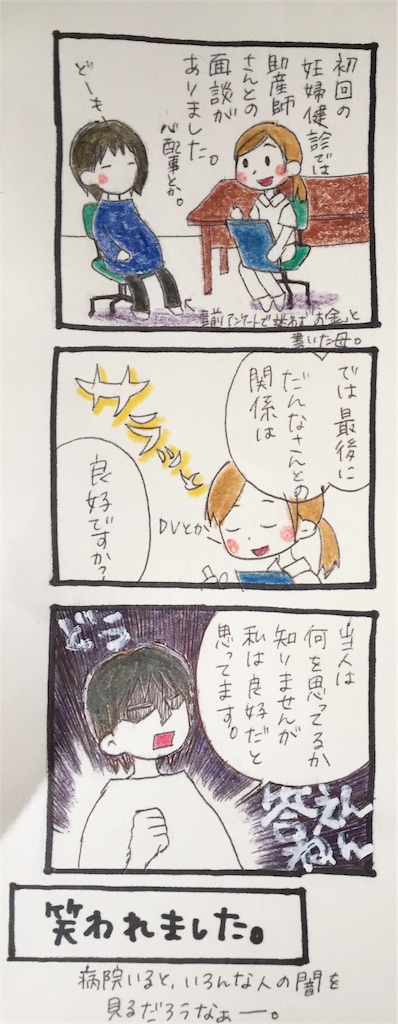 初回の
妊婦健診では
助産師
さんとの
面談が
ありました。
心配事とか。
どーも
事前アンケートで迷わず「お金」と
書いた母。
では最後に
だんなさんとの
関係は
サラッと
DVとか
良好ですか?
当人は
何を思ってるか
知りませんが
私は良好だと
思ってます。
どう
答えん
ねん
笑われました。
病院いると、いろんな人の闇を
見るだろうなぁー。